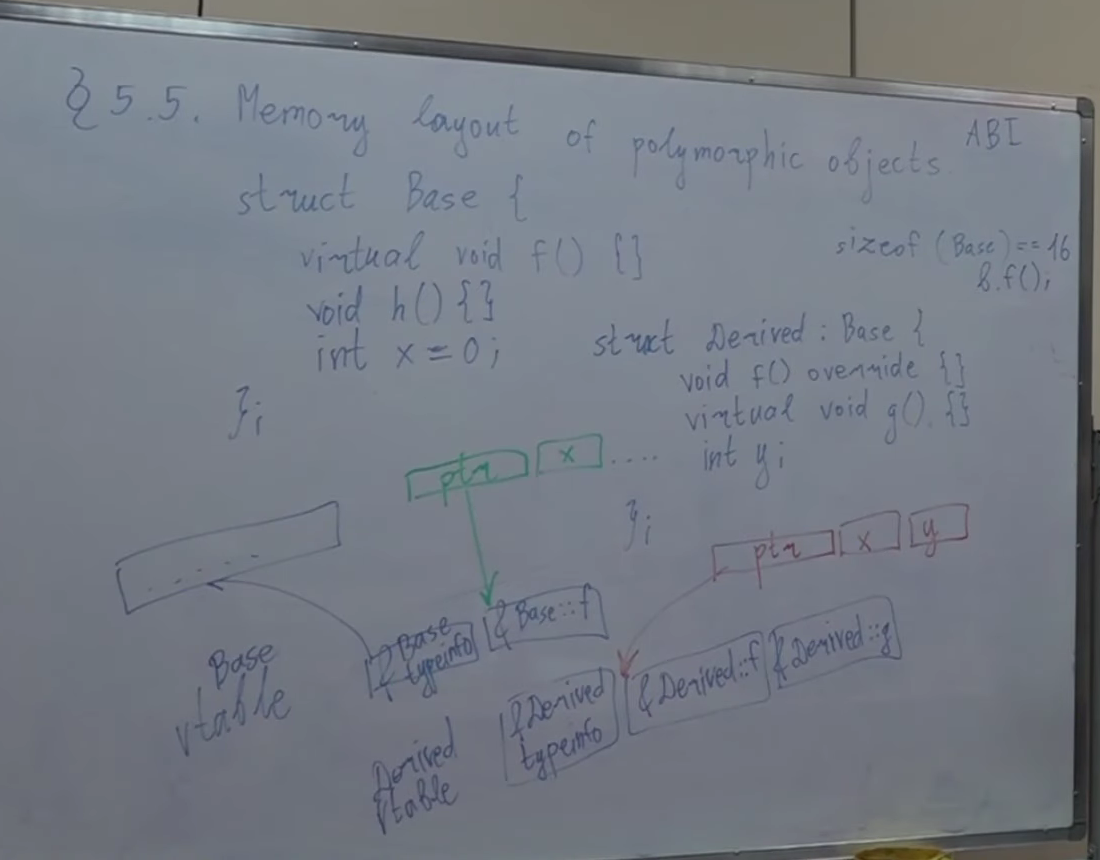 § 5.5. Memory layout of polymorphic objects.
ABI
struct Base {
virtual void f() {}
void h() {}
int x = 0;
};
sizeof (Base) == 16
b.f();
struct Derived : Base {
void f() override {}
virtual void g() {}
int y;
};
ptr x ....
ptr x y
Base
vtable
&Base
typeinfo
&Base::f
Derived
vtable
&Derived
typeinfo
&Derived::f
&Derived::g